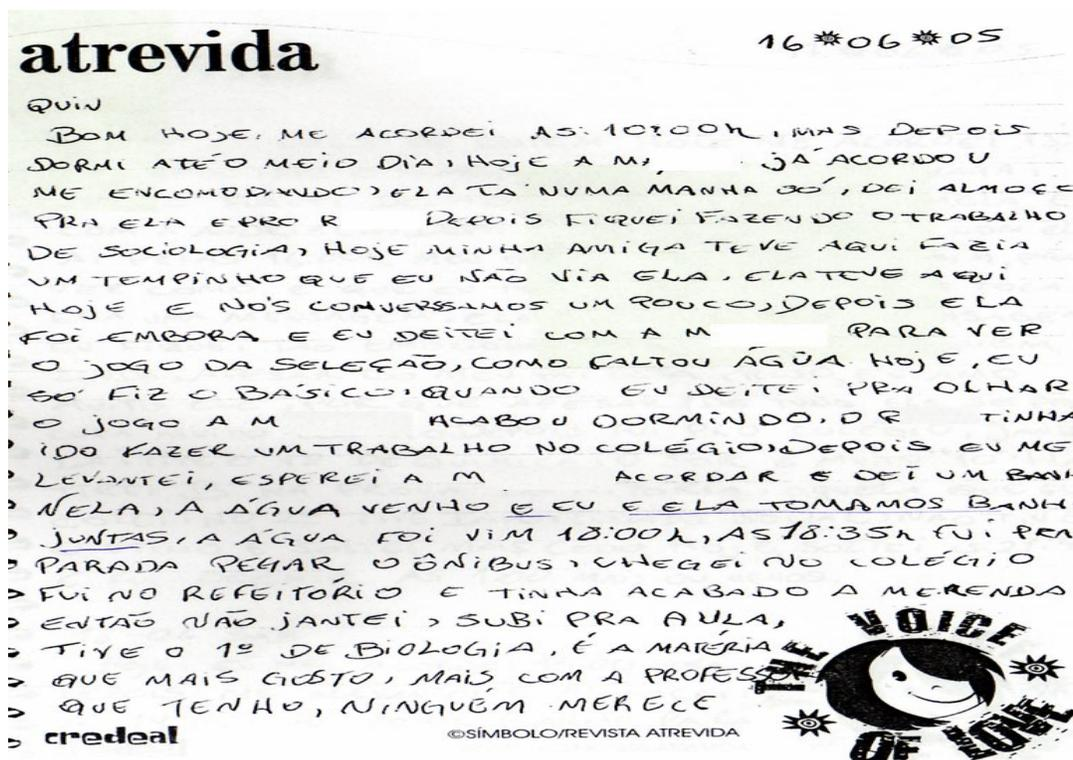 atrevida
16 06 05
QUIN
BOM HOJE. ME ACORDEI AS: 10:00h, MAS DEPOIS
DORMI ATÉ O MEIO DIA, HOJE A M, JÁ ACORDOU
ME ENCOMODANDO, ELA TA NUMA MANHA SÓ, DEI ALMOÇO
PRA ELA E PRO R DEPOIS FIQUEI FAZENDO O TRABALHO
DE SOCIOLOGIA, HOJE MINHA AMIGA TEVE AQUI FAZIA
UM TEMPINHO QUE EU NÃO VIA ELA, ELA TEVE AQUI
HOJE E NÓS CONVERSAMOS UM POUCO, DEPOIS ELA
FOI EMBORA E EU DEITEI COM A M PARA VER
O JOGO DA SELEÇÃO, COMO FALTOU ÁGUA HOJE, EU
SÓ FIZ O BÁSICO, QUANDO EU DEITEI PRA OLHAR
O JOGO A M ACABOU DORMINDO, O R TINHA
IDO FAZER UM TRABALHO NO COLÉGIO, DEPOIS EU ME
LEVANTEI, ESPEREI A M ACORDAR E DEI UM BANH
NELA, A ÁGUA VENHO E EU E ELA TOMAMOS BANH
JUNTAS, A ÁGUA FOI VIM 18:00h, AS 18:35h FUI PRA
PARADA PEGAR O ÔNIBUS, CHEGEI NO COLÉGIO
FUI NO REFEITÓRIO E TINHA ACABADO A MERENDA
ENTÃO NÃO JANTEI, SUBI PRA AULA,
TIVE O 1º DE BIOLOGIA, É A MATÉRIA
QUE MAIS GOSTO, MAIS COM A PROFESSO
QUE TENHO, NINGUÉM MERECE
THE VOICE
OF LOVE
credeal
©SÍMBOLO/REVISTA ATREVIDA